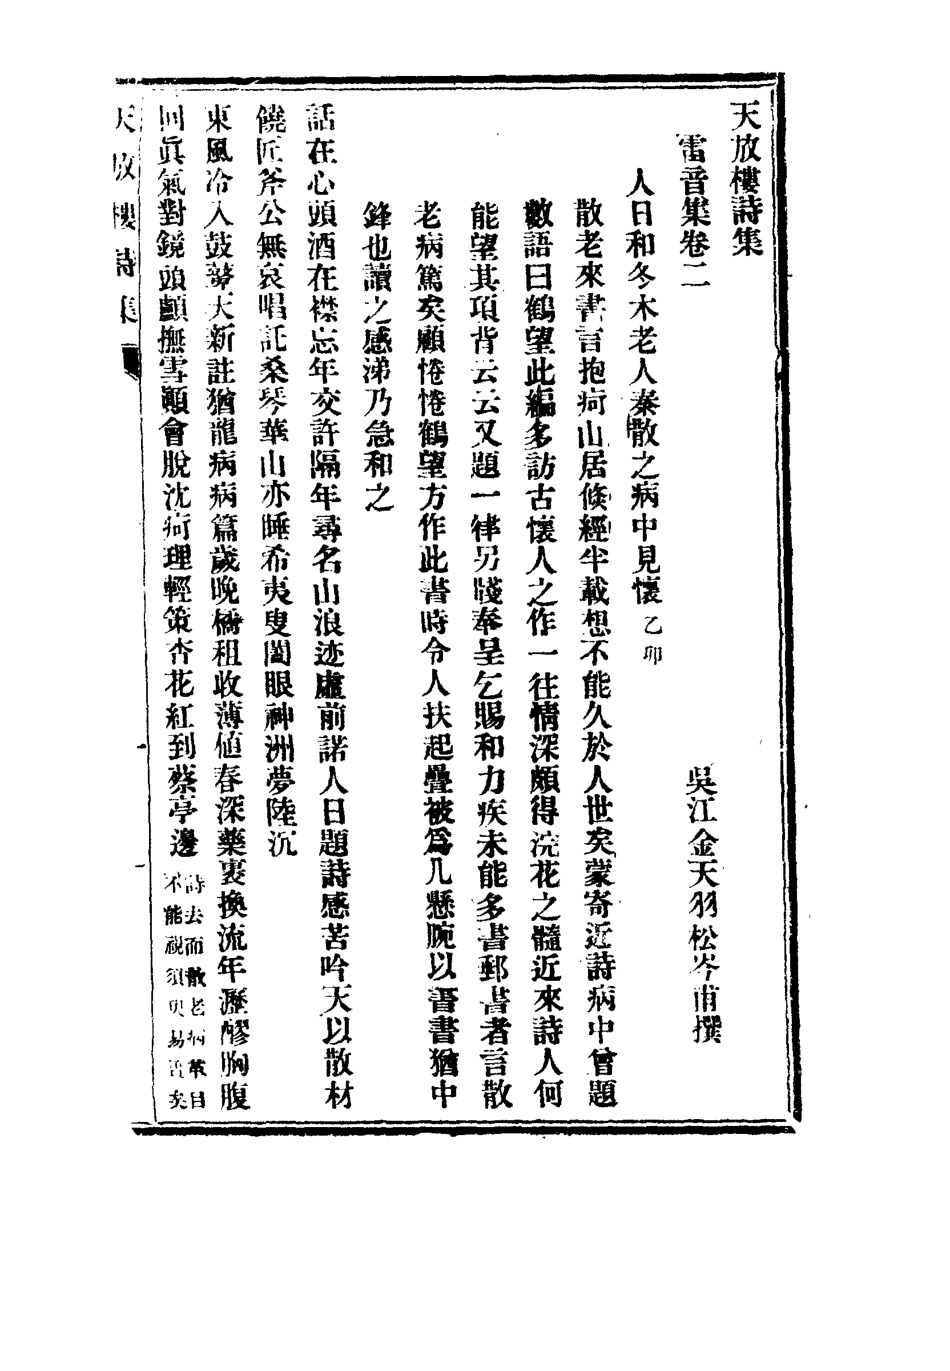 天放樓詩集
雷音集卷二
吳江金天羽松岑甫撰
人日和冬木老人秦散之病中見懷乙卯
散老來書言抱疴山居倏經半載想不能久於人世矣蒙寄近詩病中曾題
數語曰鶴望此編多訪古懷人之作一往情深頗得浣花之髓近來詩人何
能望其項背云云又題一律另牋奉呈乞賜和力疾未能多書郵書者言散
老病篤矣顧惓惓鶴望方作此書時令人扶起疊被爲几懸腕以書書猶中
鋒也讀之感涕乃急和之
話在心頭酒在襟忘年交許隔年尋名山浪迹虛前諾人日題詩感苦吟天以散材
饒匠斧公無哀唱託桑琴華山亦睡希夷叟闔眼神洲夢陸沉
東風冷入鼓聲天新註猶龍病病篇歲晚橘租收薄値春深藥裹換流年瀝醪胸腹
回眞氣對鏡頭顱撫雪顚會脫沈疴理輕策杏花紅到蔡亭邊
詩去而散老病革目
不能視須臾易簀矣
天放樓詩集